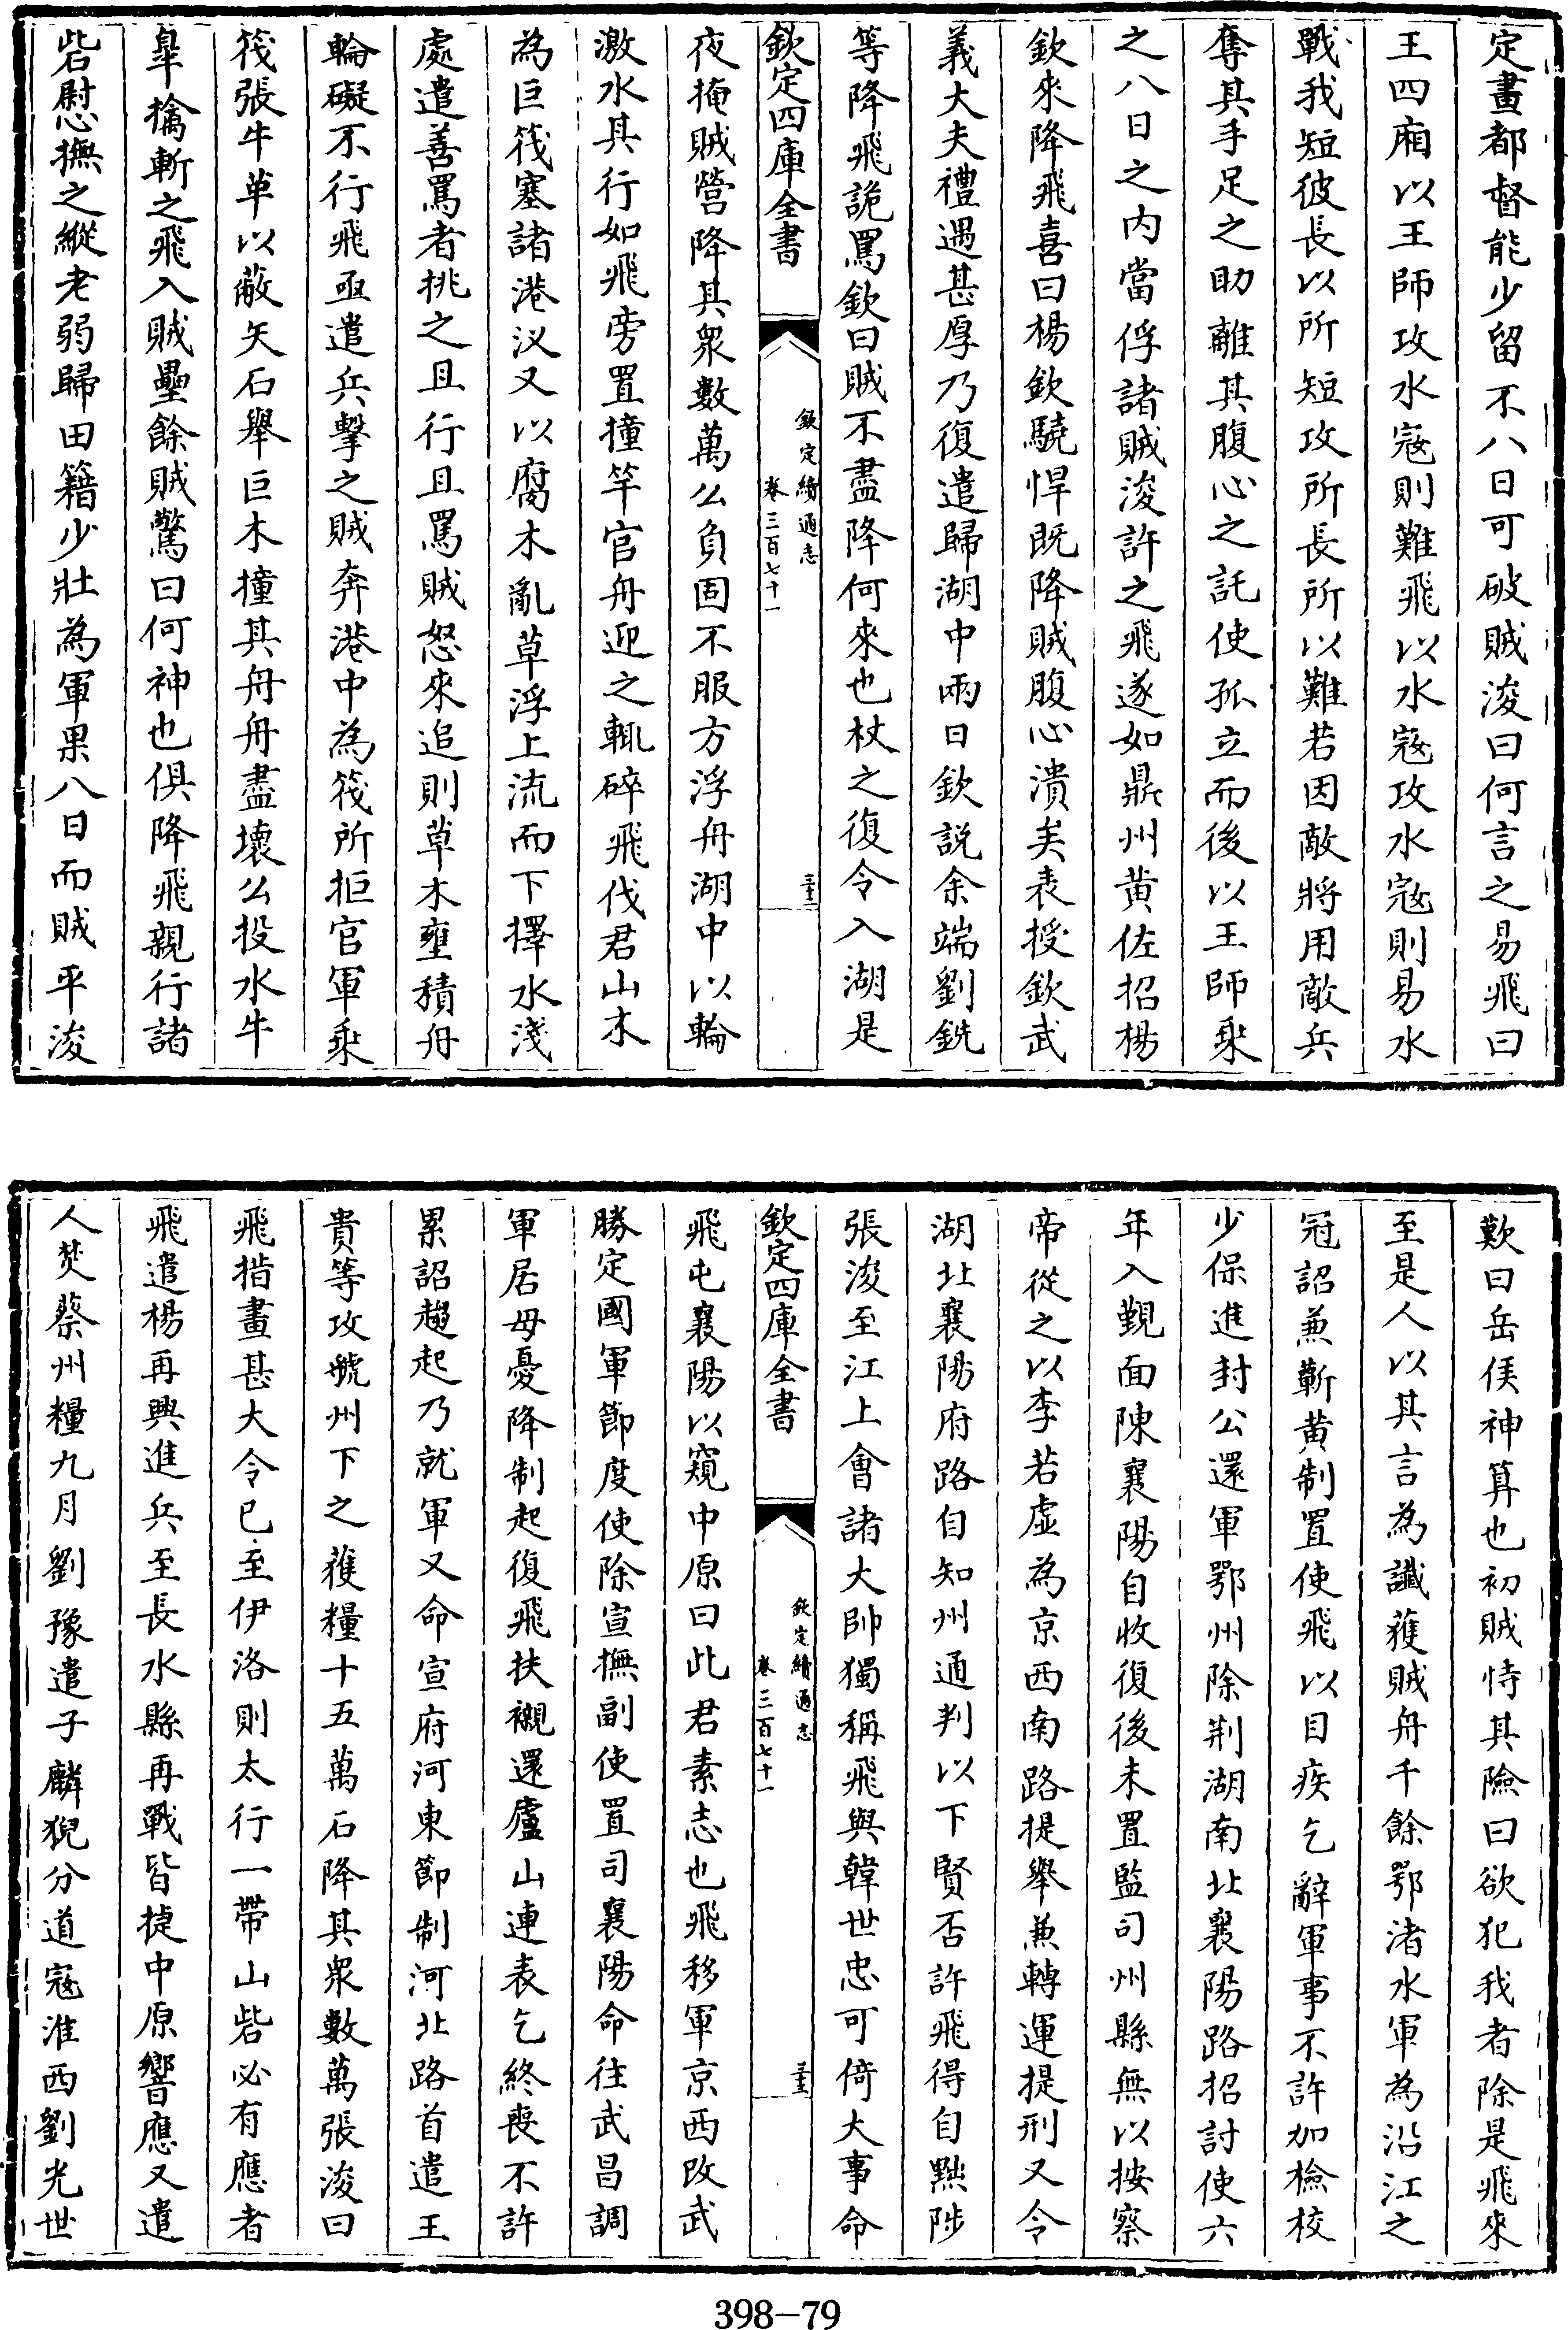 定畫都督能少留不八日可破賊浚曰何言之易飛曰
王四廂以王師攻水寇則難飛以水寇攻水寇則易水
戰我短彼長以所短攻所長所以難若因敵將用敵兵
奪其手足之助離其腹心之託使孤立而後以王師乘
之八日之内當俘諸賊浚許之飛遂如鼎州黄佐招楊
欽來降飛喜曰楊欽驍悍既降賊腹心潰矣表授欽武
義大夫禮遇甚厚乃復遣歸湖中兩日欽説余端劉銑
等降飛詭罵欽曰賊不盡降何來也杖之復令入湖是
欽定四庫全書
欽定續通志
卷三百七十一
夜掩賊營降其衆數萬么負固不服方浮舟湖中以輪
激水其行如飛旁置撞竿官舟迎之輒碎飛伐君山木
為巨筏塞諸港汊又以腐木亂草浮上流而下擇水淺
處遣善罵者挑之且行且罵賊怒來追則草木壅積舟
輪礙不行飛亟遣兵擊之賊奔港中為筏所拒官軍乘
筏張牛革以蔽矢石舉巨木撞其舟舟盡壞么投水牛
臯擒斬之飛入賊壘餘賊驚曰何神也俱降飛親行諸
砦慰撫之縱老弱歸田籍少壯為軍果八日而賊平浚
歎曰岳侯神算也初賊恃其險曰欲犯我者除是飛來
至是人以其言為讖獲賊舟千餘鄂渚水軍為沿江之
冠詔兼蘄黄制置使飛以目疾乞辭軍事不許加檢校
少保進封公還軍鄂州除荆湖南北襄陽路招討使六
年入覲面陳襄陽自收復後未置監司州縣無以按察
帝從之以李若虛為京西南路提舉兼轉運提刑又令
湖北襄陽府路自知州通判以下賢否許飛得自黜陟
張浚至江上會諸大帥獨稱飛與韓世忠可倚大事命
欽定四庫全書
欽定續通志
卷三百七十一
飛屯襄陽以窺中原曰此君素志也飛移軍京西改武
勝定國軍節度使除宣撫副使置司襄陽命往武昌調
軍居母憂降制起復飛扶櫬還廬山連表乞終喪不許
累詔趨起乃就軍又命宣府河東節制河北路首遣王
貴等攻虢州下之獲糧十五萬石降其衆數萬張浚曰
飛措畫甚大令已至伊洛則太行一帶山砦必有應者
飛遣楊再興進兵至長水縣再戰皆捷中原響應又遣
人焚蔡州糧九月劉豫遣子麟猊分道寇淮西劉光世
398-79